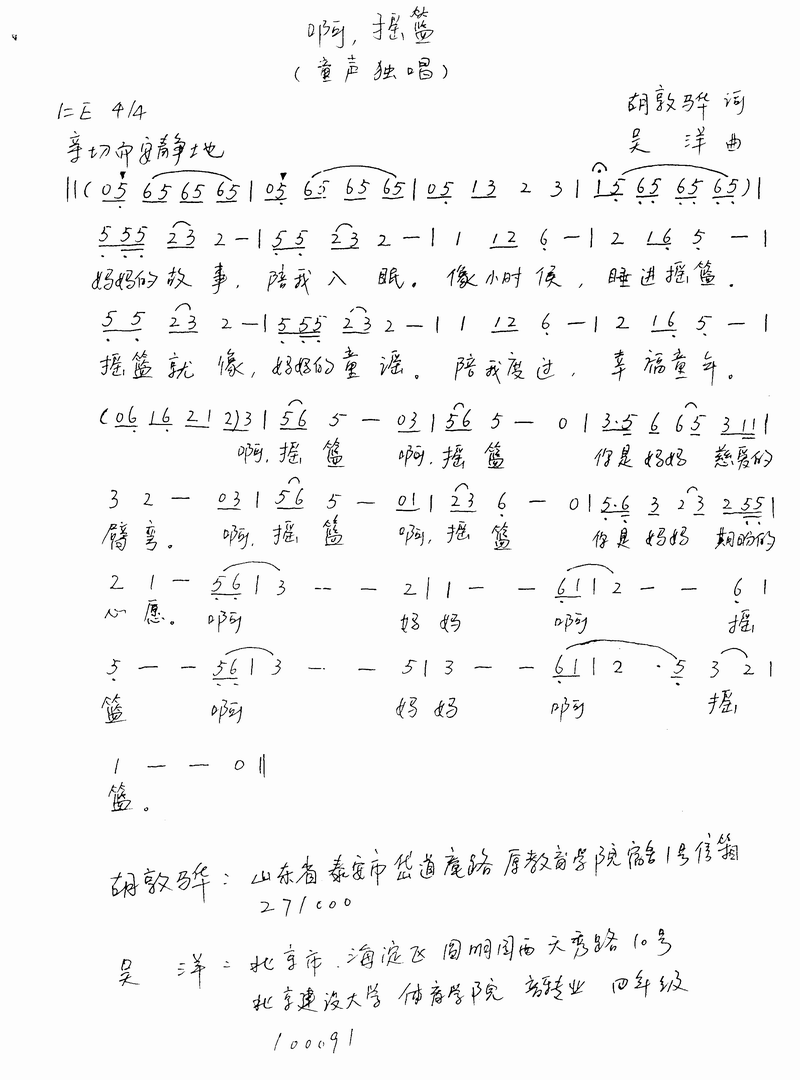 啊，摇篮
（童声独唱）
1=E 4/4
胡敦骅 词
亲切而安静地
吴 洋 曲
||(05 65 65 65|05 65 65 65|05 13 2 3|15 65 65 65)|
5 55 23 2－|55 23 2－|1 12 6－|2 16 5 －|
妈妈的故事，陪我入眠。像小时候，睡进摇篮。
5 5 23 2－|5 55 23 2－|1 12 6－|2 16 5－|
摇篮就像，妈妈的童谣。陪我度过，幸福童年。
(06 16 21 2)3|56 5 － 03|56 5 － 0|3·5 6 65 3 11|
啊，摇篮 啊，摇篮 你是妈妈 慈爱的
3 2 － 03|56 5 － 01|23 6 － 0|5·6 3 23 2 55|
臂弯。 啊，摇篮 啊，摇篮 你是妈妈 期盼的
2 1 － 56|3 － － 2|1 － － 61|2 － － 6|
心愿。 啊 妈妈 啊 摇
5 － － 56|3 － － 5|3 － － 61|2 · 5 3 2|
篮 啊 妈妈 啊 摇
1 － － 0||
篮。
胡敦骅：山东省泰安市岱道庵路原教育学院宿舍1号信箱
271000
吴 洋：北京市．海淀区 圆明园西 天秀路10号
北京建设大学 体育学院 音乐专业 四年级
100091